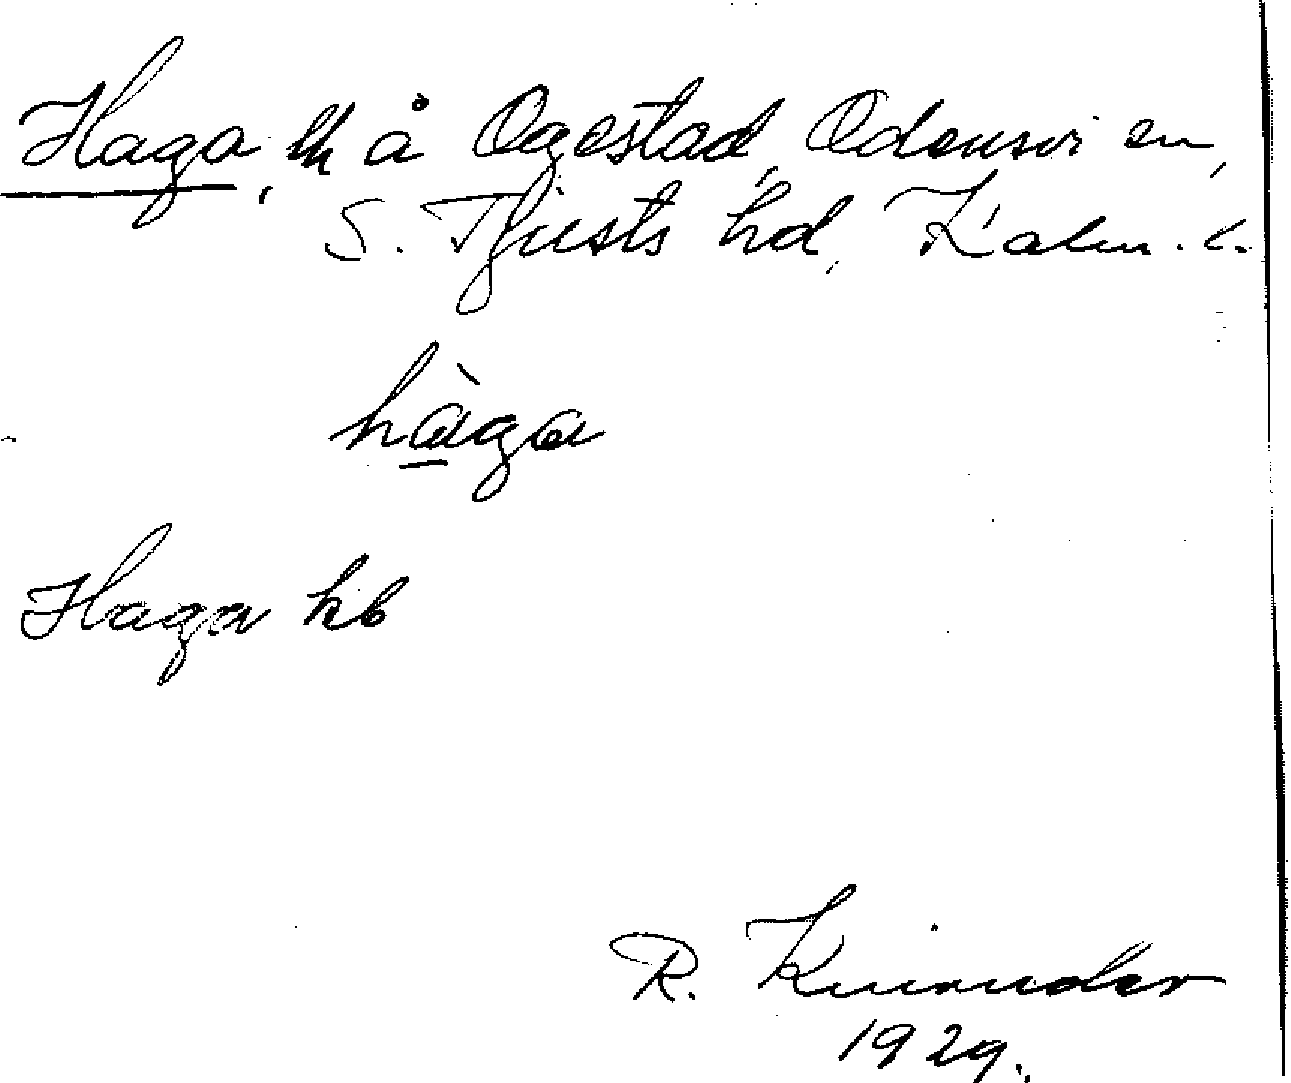 Haga, lh å Ogestad, Odensvi sn,
S. Tjusts hd, Kalm. l.
hàga
Haga kb
R. Kinander
1929.